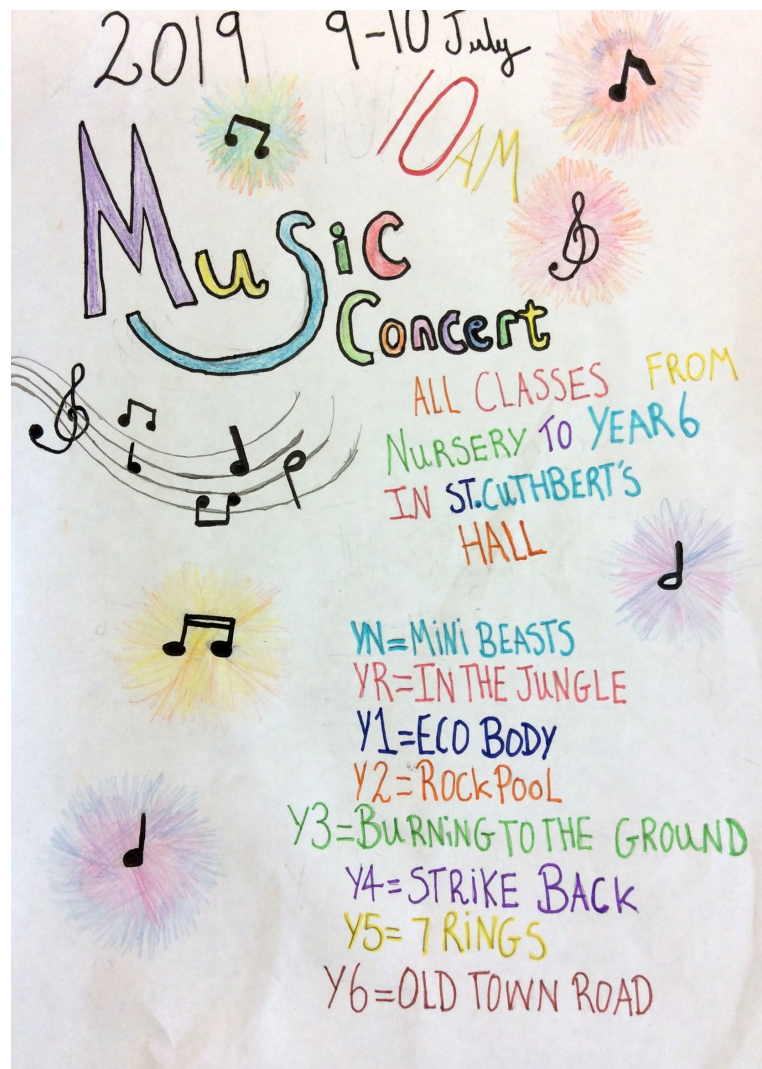 2019 9-10 July
10AM
MuSiC
Concert
ALL CLASSES FROM
NURSERY TO YEAR 6
IN ST.CUTHBERT'S
HALL
YN=MiNi BEASTS
YR=IN THE JUNGLE
Y1=ECO BODY
Y2=ROCKPOOL
Y3=BURNiNG TO THE GROUND
Y4=STRiKE BACK
Y5=7 RiNGS
Y6=OLD TOWN ROAD